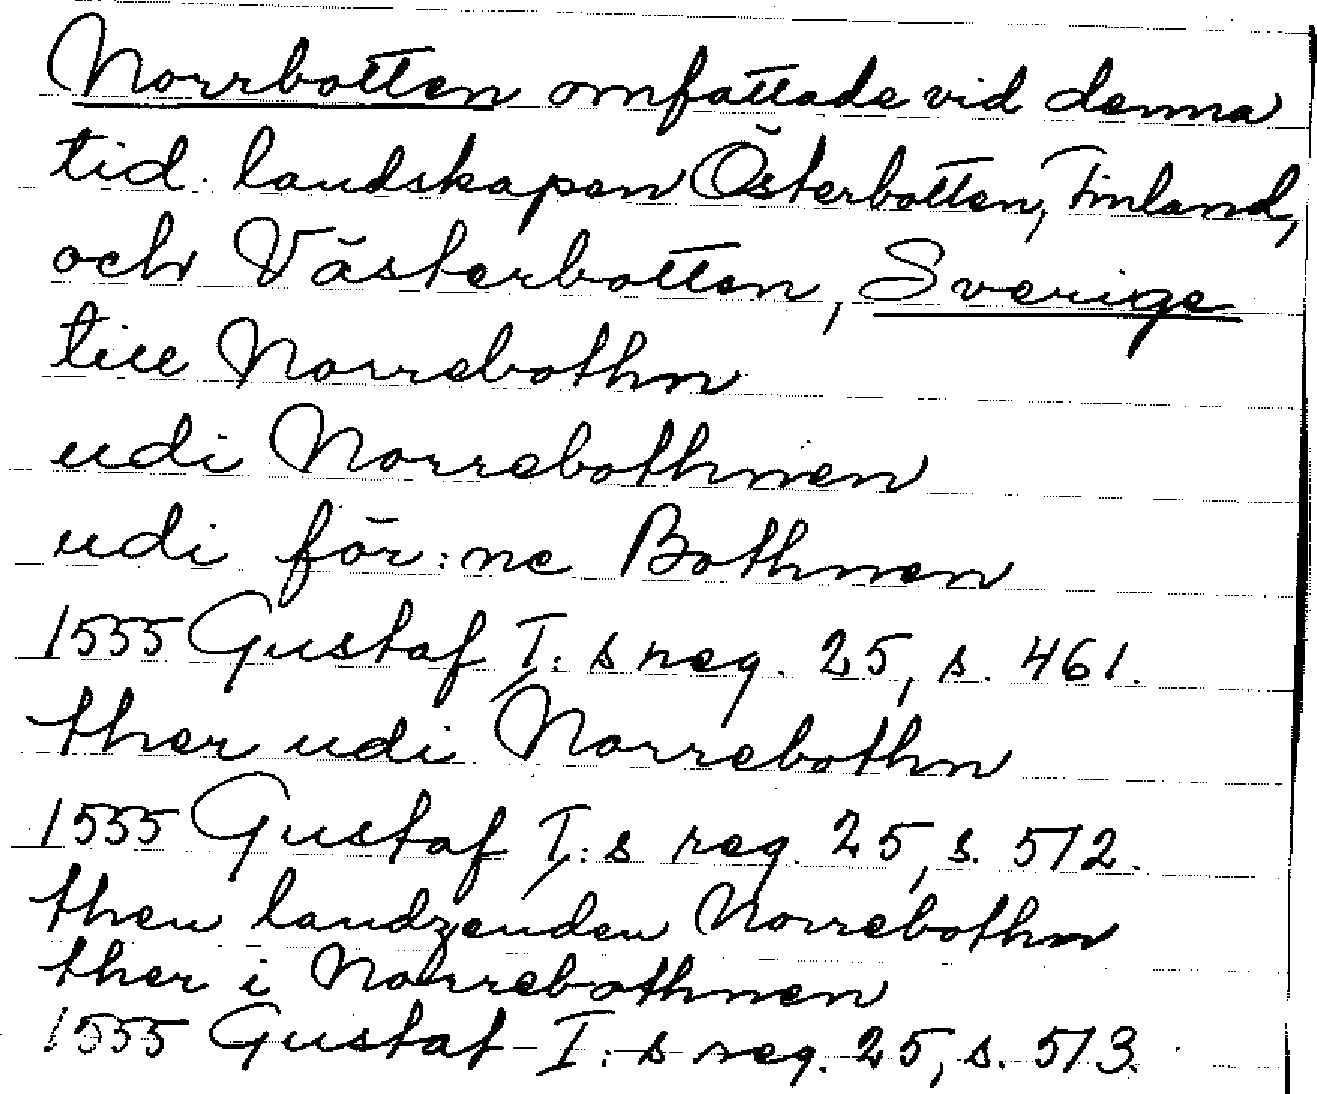 Norrbotten omfattade vid denna
tid landskapen Österbotten, Finland,
och Västerbotten, Sverige
till Norrebothn
udi Norrebothnen
udi för:ne Bothnen
1555 Gustaf I:s reg. 25, s. 461.
ther udi Norrebothn
1555 Gustaf I:s reg. 25, s. 512.
then landzenden Norrebothn
ther i Norrebothnen
1555 Gustaf I:s reg. 25, s. 513.